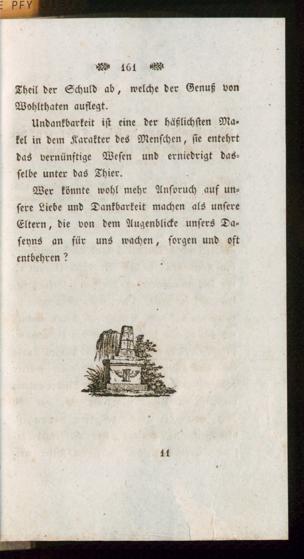 E PFY
161
Theil der Schuld ab, welche der Genuß von
Wohlthaten auflegt.
Undankbarkeit ist eine der häßlichsten Ma-
kel in dem Karakter des Menschen, sie entehrt
das vernünftige Wesen und erniedrigt das-
selbe unter das Thier.
Wer könnte wohl mehr Anspruch auf un-
sere Liebe und Dankbarkeit machen als unsere
Eltern, die von dem Augenblicke unsers Da-
seyns an für uns wachen, sorgen und oft
entbehren?
11